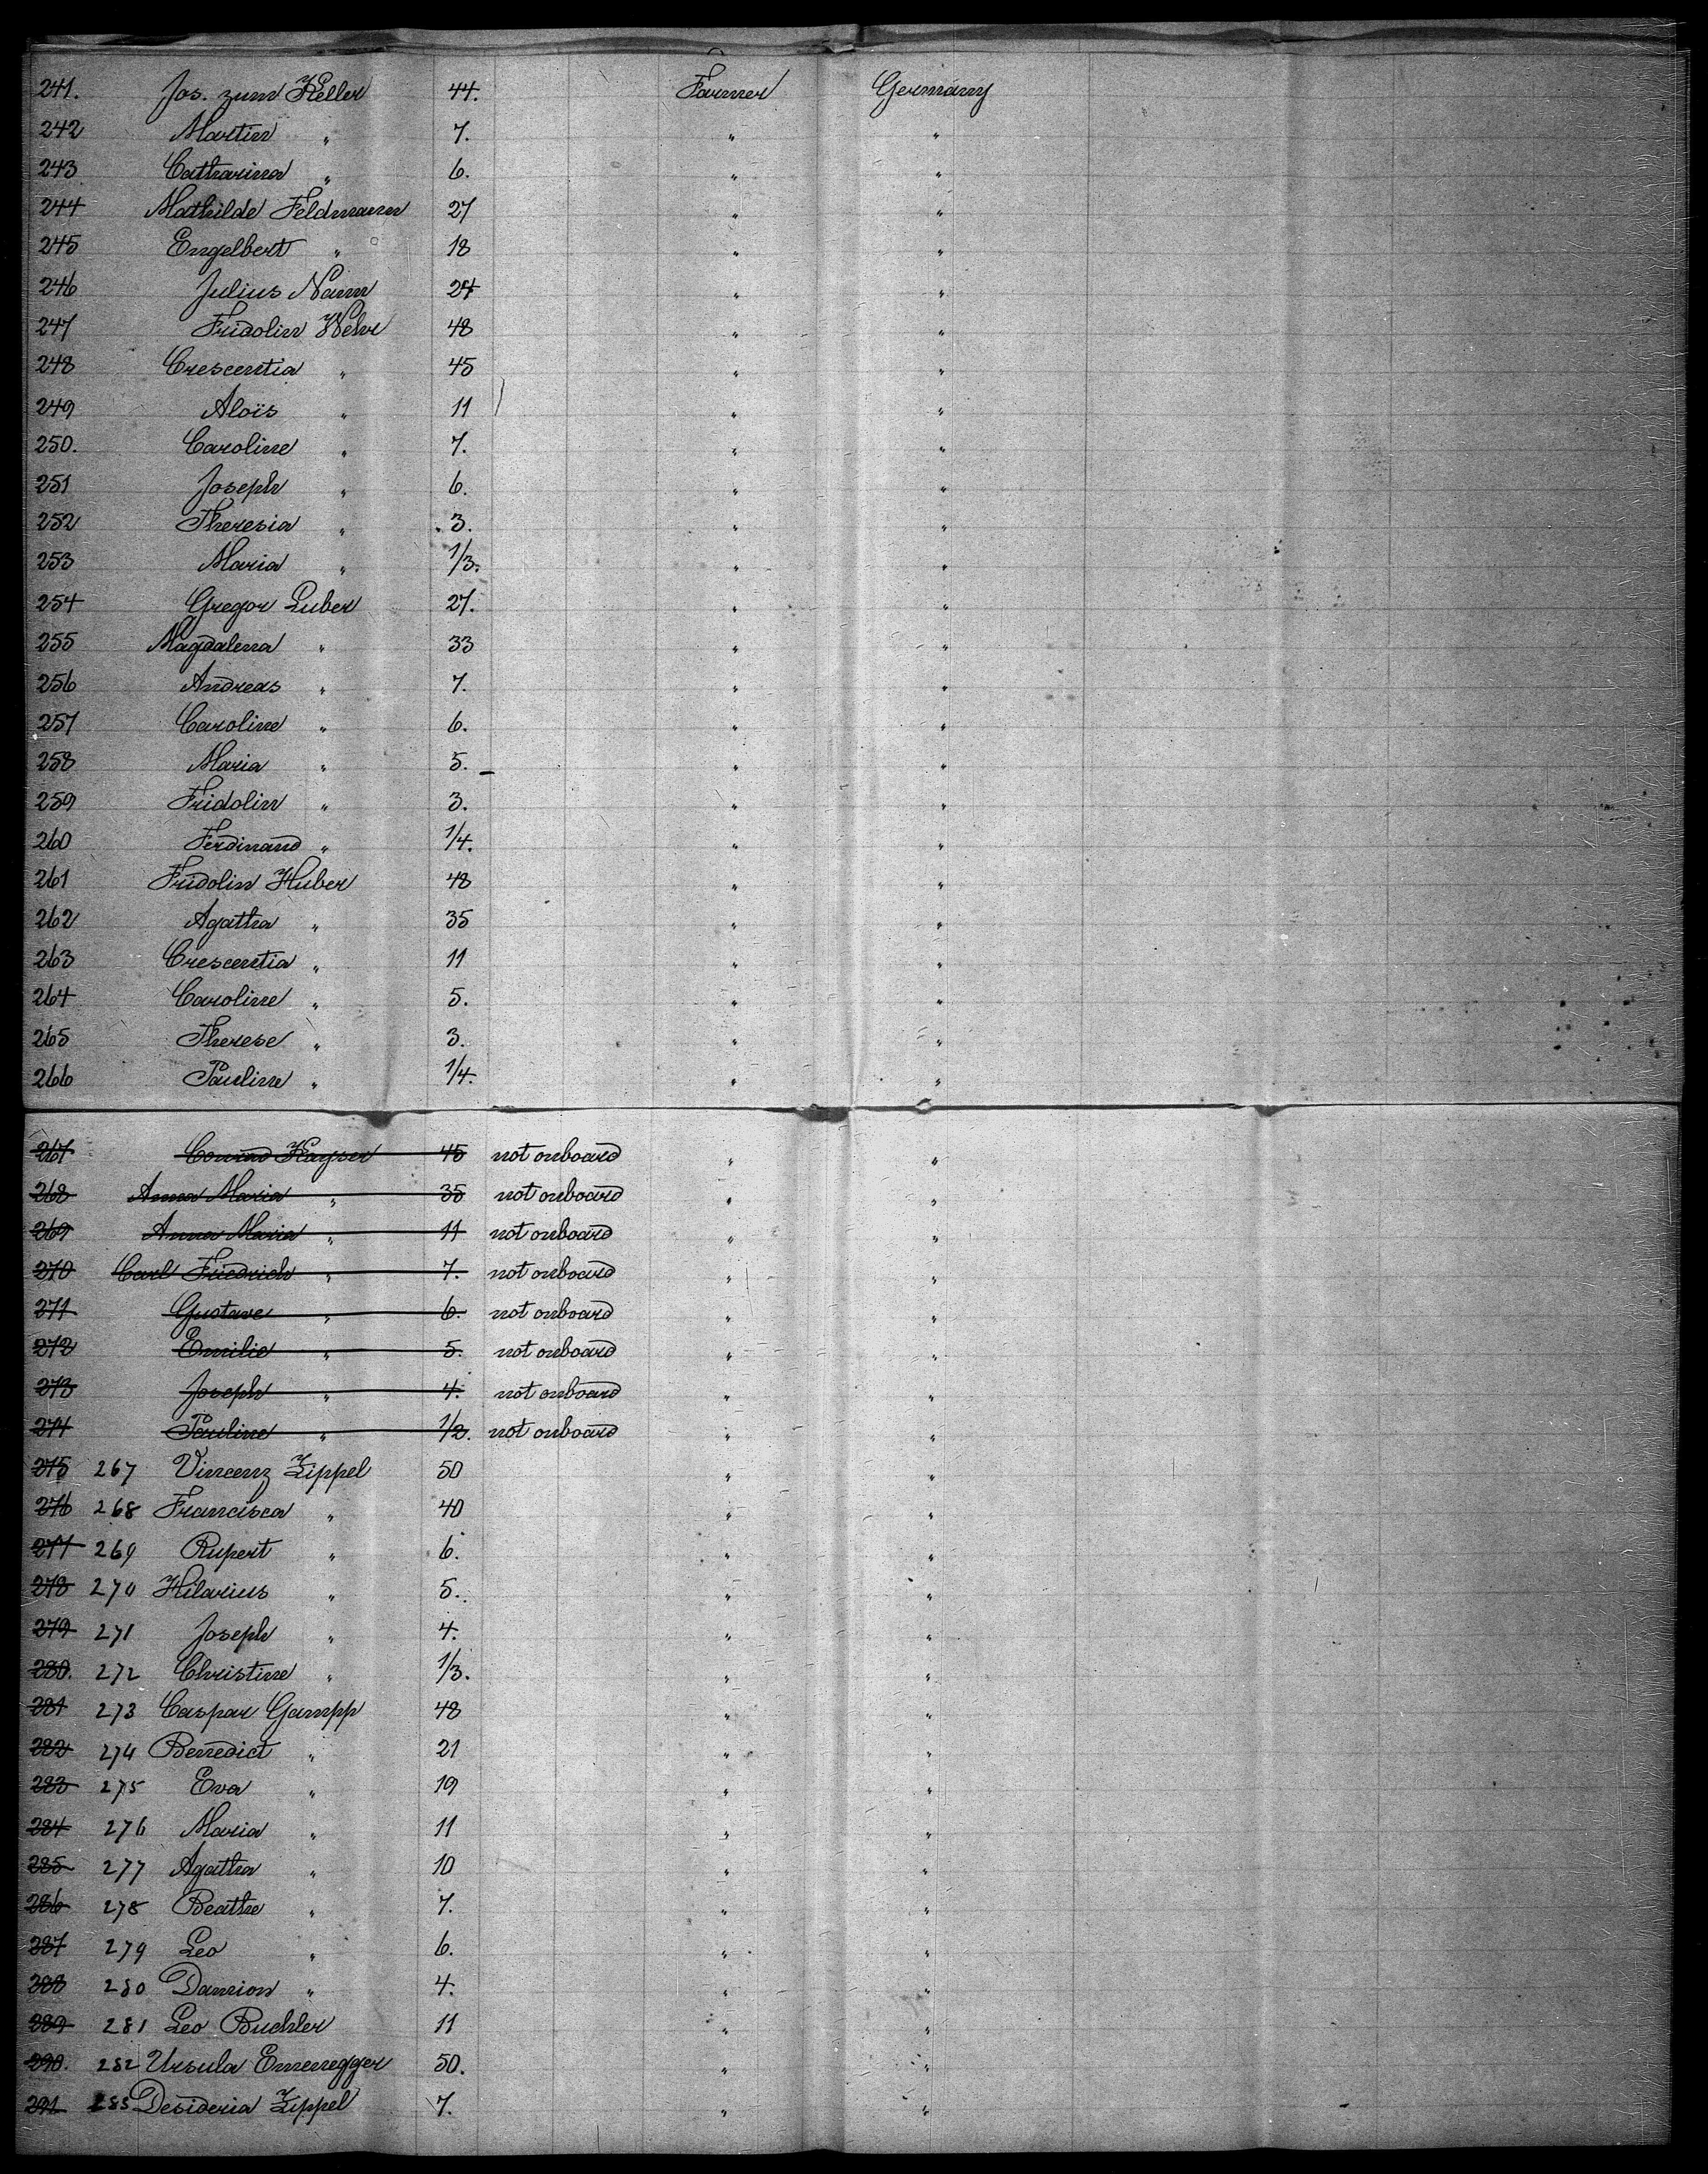 241. Jos. zum Keller 44. Farmer Germany
242 Martin " 7. " "
243 Catharina " 6. " "
244 Mathilde Feldmann 27 " "
245 Engelbert " 18 " "
246 Julius Nann 24 " "
247 Fridolin Wehr 48 " "
248 Crescentia " 45 " "
249 Aloïs " 11 " "
250. Caroline " 7. " "
251 Joseph " 6. " "
252 Theresia " 3. " "
253 Maria " 1/3. " "
254 Gregor Luber 27. " "
255 Magdalena " 33 " "
256 Andreas " 7. " "
257 Caroline " 6. " "
258 Maria " 5. " "
259 Fridolin " 3. " "
260 Ferdinand " 1/4. " "
261 Fridolin Huber 48 " "
262 Agatha " 35 " "
263 Crescentia " 11 " "
264 Caroline " 5. " "
265 Therese " 3. " "
266 Pauline " 1/4. " "
267 Conrad Kayser 45 not onboard " "
268 Anna Maria " 35 not onboard " "
269 Anna Maria " 11 not onboard " "
270 Carl Friedrich " 7. not onboard " "
271 Gustave " 6. not onboard " "
272 Emilie " 5. not onboard " "
273 Joseph " 4. not onboard " "
274 Pauline " 1/2. not onboard " "
275 267 Vincenz Zippel 50 " "
276 268 Francisca " 40 " "
277 269 Rupert " 6. " "
278 270 Hilarius " 5. " "
279 271 Joseph " 4. " "
280. 272 Christine " 1/3. " "
281 273 Caspar Gampp 48 " "
282 274 Benedict " 21 " "
283 275 Eva " 19 " "
284 276 Maria " 11 " "
285 277 Agatha " 10 " "
286 278 Beathe " 7. " "
287 279 Leo " 6. " "
288 280 Damion " 4. " "
289 281 Leo Buchler 11 " "
290. 282 Ursula Emenegger 50. " "
291 283 Desideria Zippel 7. " "